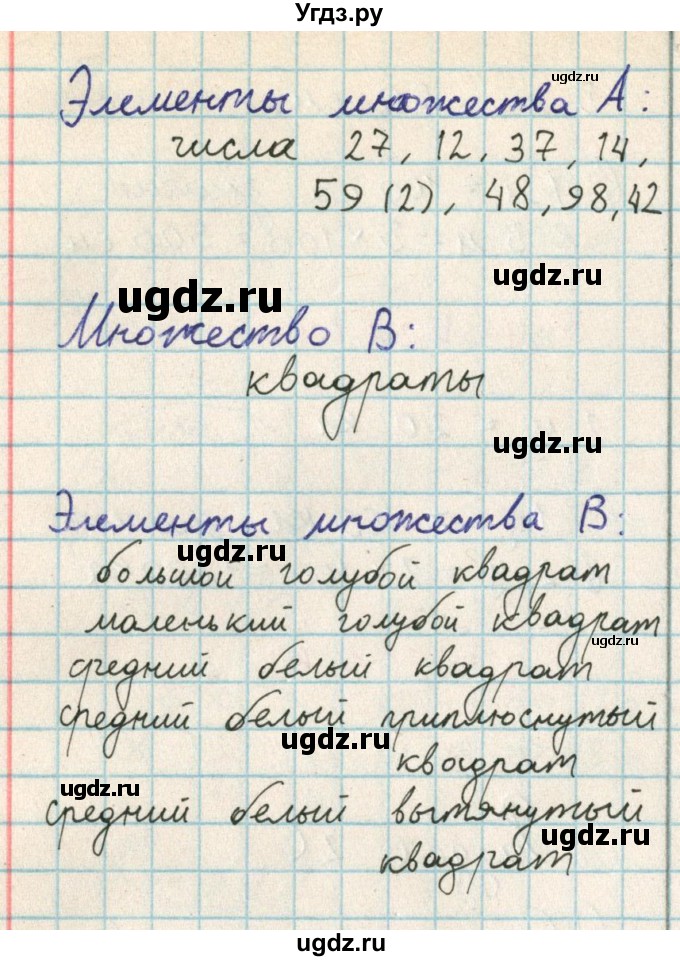 Угдз.ру
ugdz.ru
Элементы множества А:
числа 27, 12, 37, 14,
59 (2), 48, 98, 42
ugdz.ru
ugdz.ru
Множество В:
квадраты
ugdz.ru
Элементы множества В:
ugdz.ru
большой голубой квадрат
маленький голубой квадрат
ugdz.ru
средний белый квадрат
средний белый приплюснутый
ugdz.ru
квадрат
ugdz.ru
средний белый вытянутый
ugdz.ru
квадрат
ugdz.ru